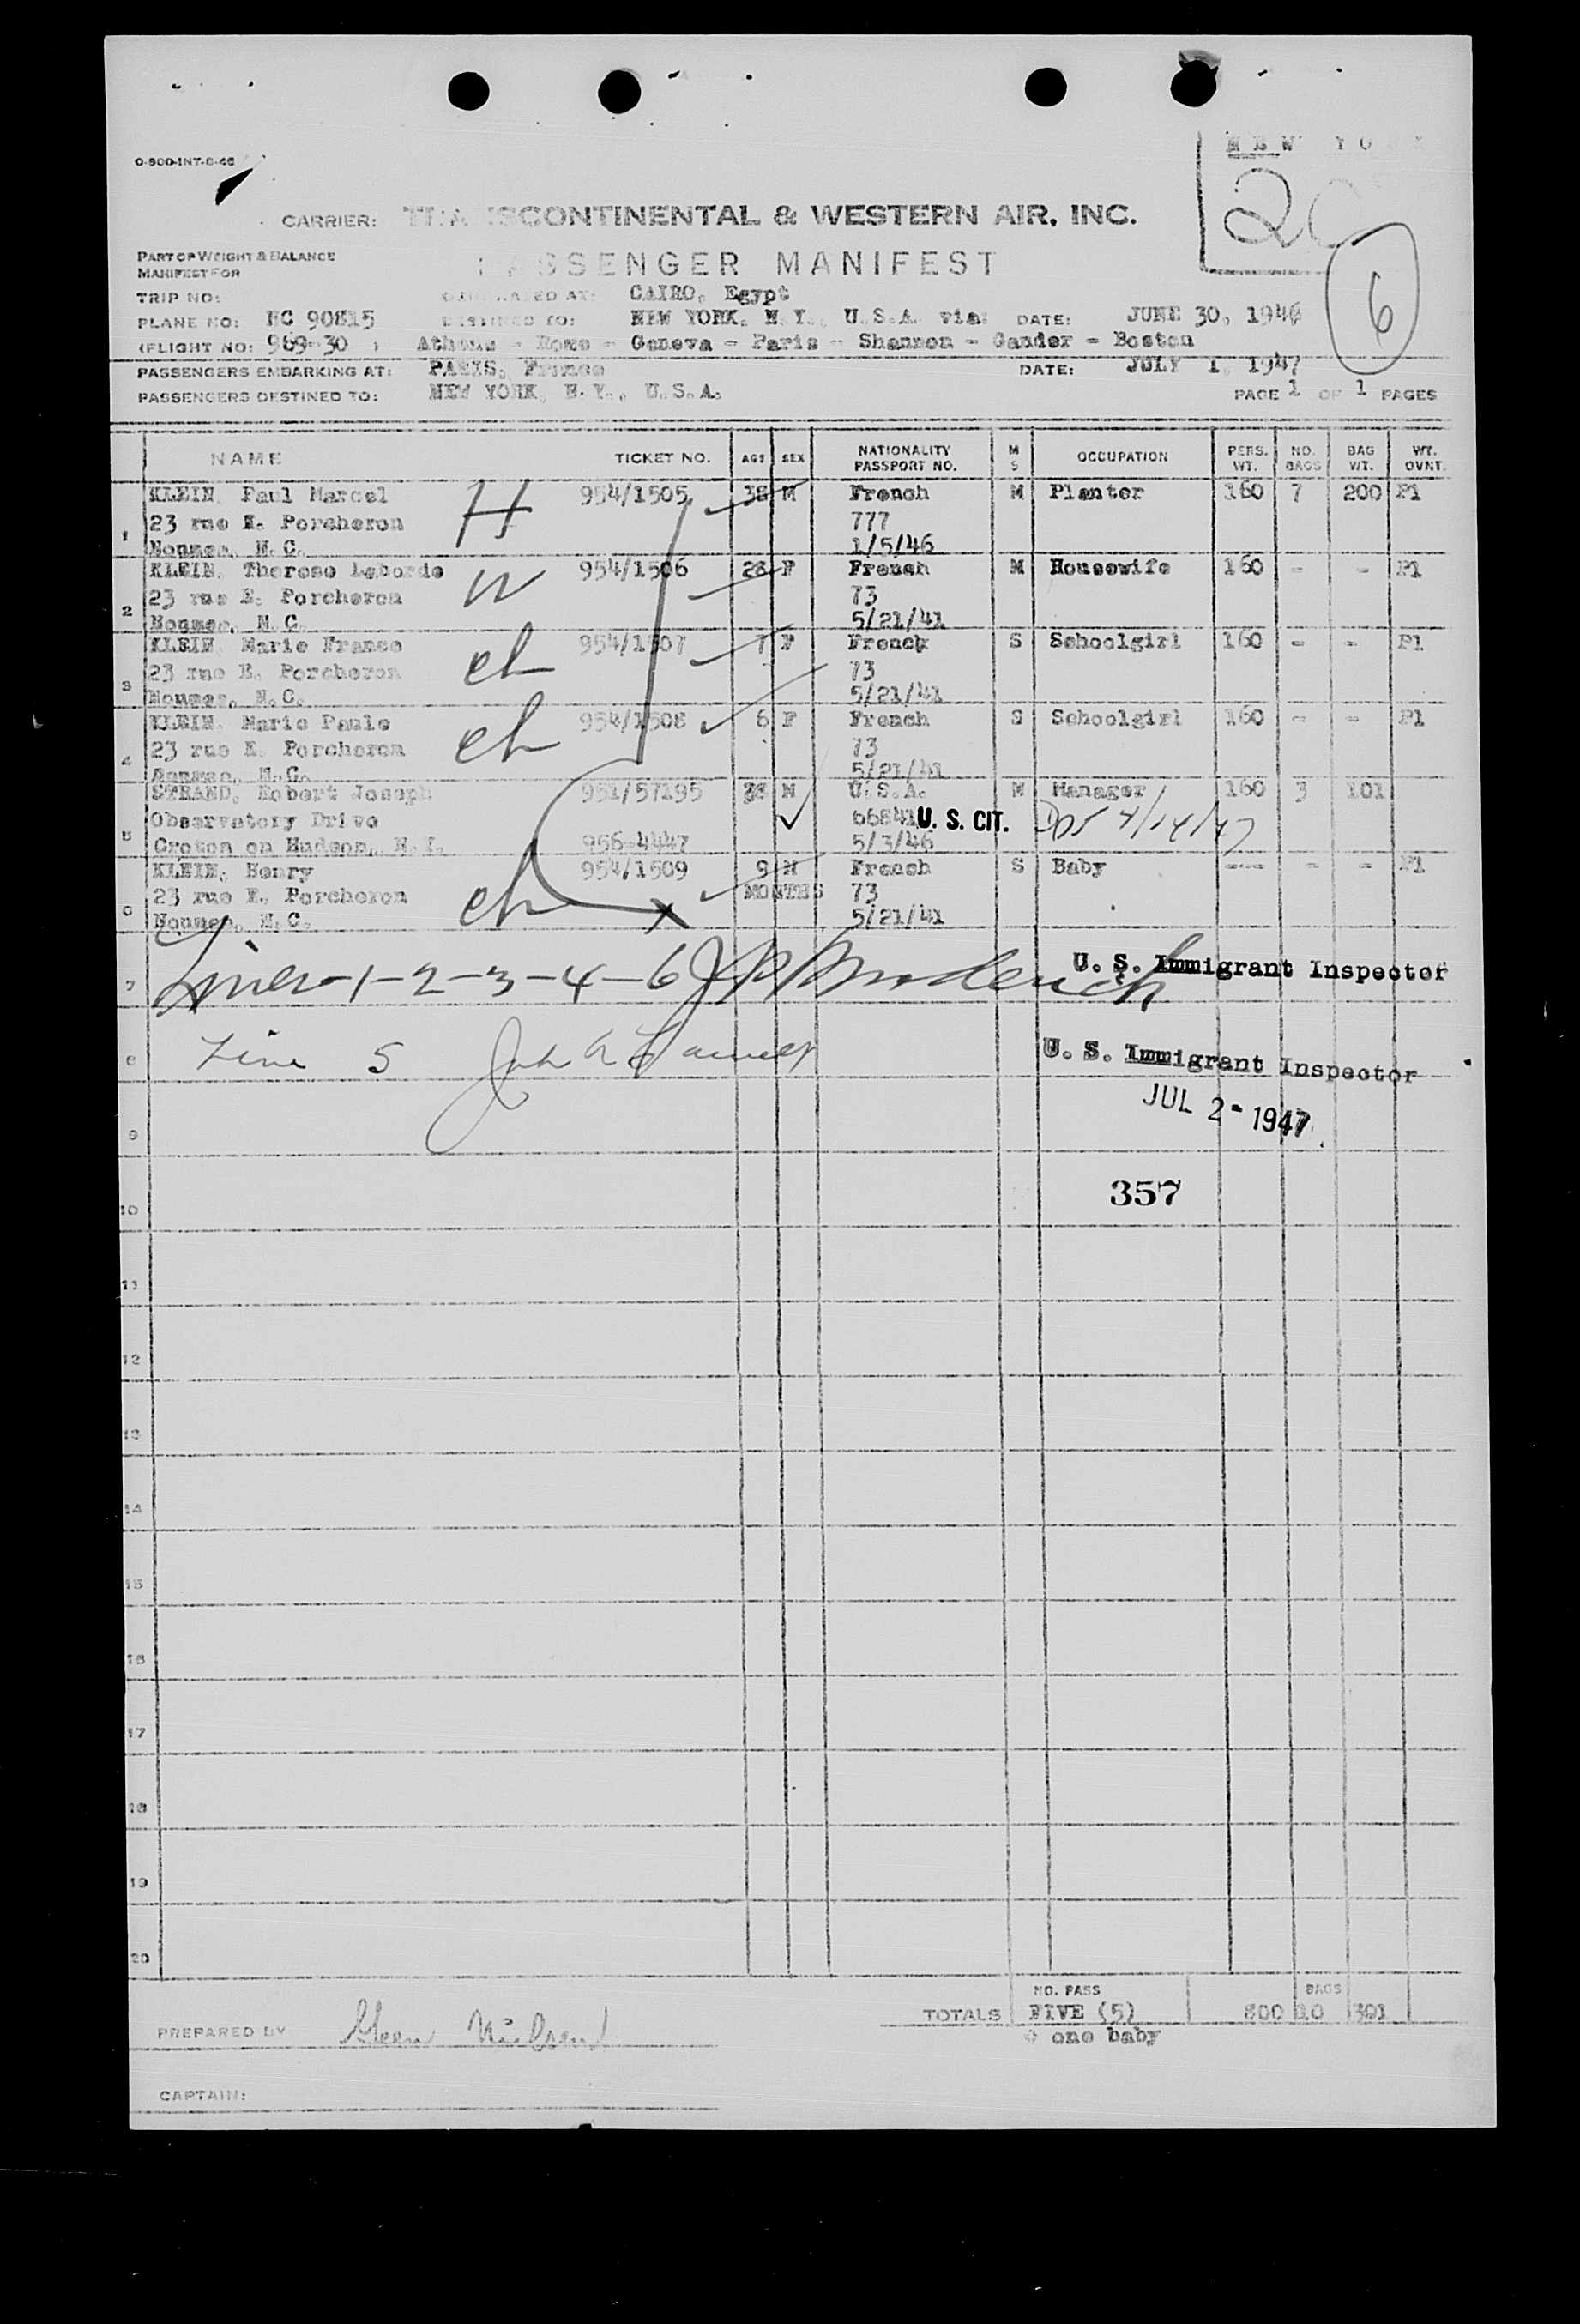 0-900-INT-8-46
NEW YO
20
CARRIER: TRANSCONTINENTAL & WESTERN AIR, INC.
6
PART OF WEIGHT & BALANCE
MANIFEST FOR
PASSENGER MANIFEST
TRIP NO: ORIGINATED AT: CAIRO, Egypt
PLANE NO: NC 90815 DESTINED TO: NEW YORK, N.Y., U.S.A. via: DATE: JUNE 30, 194
(FLIGHT NO: 969-30 ) Athens - Rome - Geneva - Paris - Shannon - Gander - Boston
PASSENGERS EMBARKING AT: PARIS, France DATE: JULY 1, 1947
PASSENGERS DESTINED TO: NEW YORK, N.Y., U.S.A. PAGE 1 OF 1 PAGES
NAME TICKET NO. AGE SEX NATIONALITY PASSPORT NO. M S OCCUPATION PERS. WT. NO. BAGS BAG WT. WT. OVNT.
KLEIN, Paul Marcel H 954/1505 38 M French M Planter 160 7 200 Pl
23 rue E. Porcheron 777
1 Noumea, N.C. 1/5/46
KLEIN, Therese Laborde W 954/1506 28 F French M Housewife 160 - - Pl
23 rue E. Porcheron 73
2 Noumea, N.C. 5/21/41
KLEIN, Marie France ch 954/1507 7 F French S Schoolgirl 160 - - Pl
23 rue E. Porcheron 73
3 Noumea, N.C. 5/21/41
KLEIN, Marie Paule ch 954/1508 6 F French S Schoolgirl 160 - - Pl
23 rue E. Porcheron 73
4 Noumea, N.C. 5/21/41
STRAND, Robert Joseph 951/57195 38 M U.S.A. M Manager 160 3 101
Observatory Drive 66841 U. S. CIT.
5 Croton on Hudson, N.Y. 956-4447 5/3/46
KLEIN, Henry ch 954/1509 9 M French S Baby --- - - Pl
23 rue E. Porcheron MONTHS 73
6 Noumea, N.C. 5/21/41
7 Lines-1-2-3-4-6 Broderick U. S. Immigrant Inspector
8 Line 5 U. S. Immigrant Inspector
JUL 2 - 1947
9
357
10
11
12
13
14
15
16
17
18
19
20
NO. PASS BAGS
TOTALS FIVE (5) 800 10 301
+ one baby
PREPARED BY
CAPTAIN: